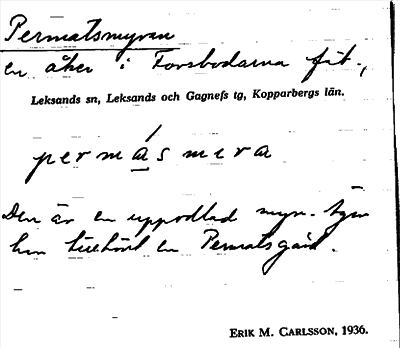 Permatsmyran
en åker i Forsbodarna fäb.,
Leksands sn, Leksands och Gagnefs tg, Kopparbergs län.
permásmera
Den är en uppodlad myr.
har tillhört en Permatsgård.
ERIK M. CARLSSON, 1936.